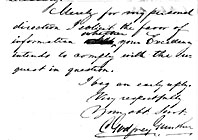 Merely for my personal
direction I solicit the favor of
information whether your Excellency
intends to comply with the
quest in question.
I beg an early reply.
Very respectfully
Your obdt. Servt.
C. Godfrey Gunther